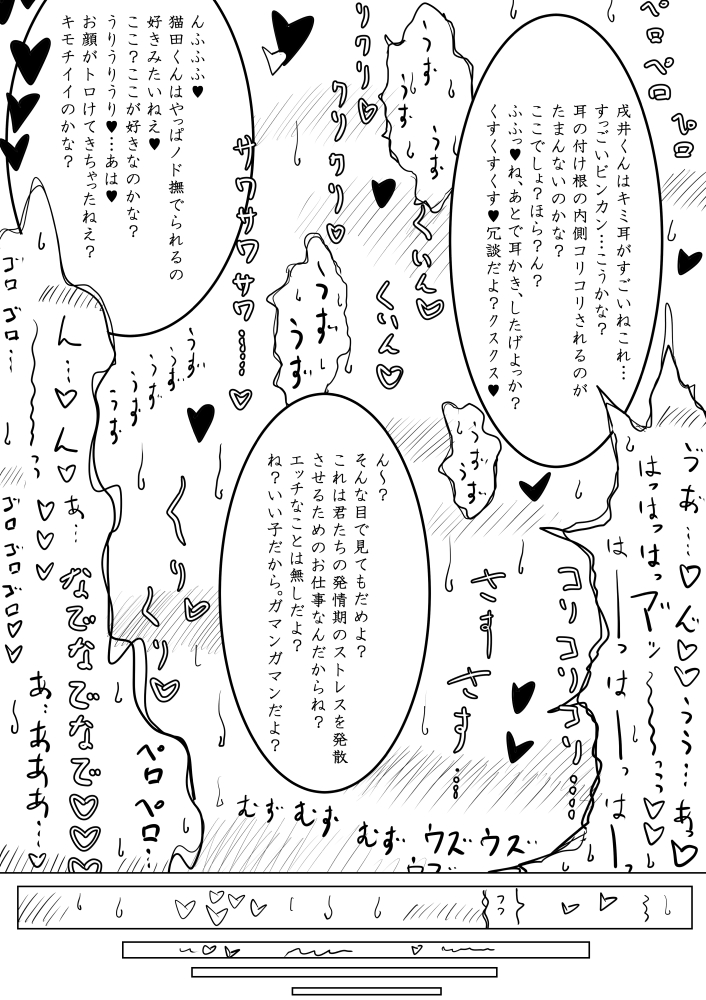 戌井くんはキミ耳がすごいねこれ…
すっごいビンカン…こうかな?
耳の付け根の内側コリコリされるのが
たまんないのかな?
ここでしょ?ほら?ん?
ふふっ♥ね、あとで耳かき、したげよっか?
くすくすくす♥冗談だよ?クスクス♥
んふふふ♥
猫田くんはやっぱノド撫でられるの
好きみたいねえ♥
ここ?ここが好きなのかな?
うりうりうり♥…あは♥
お顔がトロけてきちゃったねえ?
キモチイイのかな?
ん〜?
そんな目で見てもだめよ?
これは君たちの発情期のストレスを発散
させるためのお仕事なんだからね?
エッチなことは無しだよ?
ね?いい子だから。ガマンガマンだよ?
ペロペロ
ペロ
うず
うず
うず
うず
リクリ♡
クリクリ♡
くりん♡
くりん♡
サワサワサワサワ…♡
うず
うず
うず
うず
うず
うず
うず
うず
うず
うず
ゴロゴロ…
ん…♡ん♡
あ…
くりくり♡♡
さすさす…
コリコリコリコリ…
はっはっはっ
はーっはーっはーっ
ううう…あっ♡
ゴロゴロゴロ♡♡
なでなでなでなで♡♡♡
あ…あああ…♡
ペロペロ…
むずむず
むず
ウズウズ
ウズ
っっ